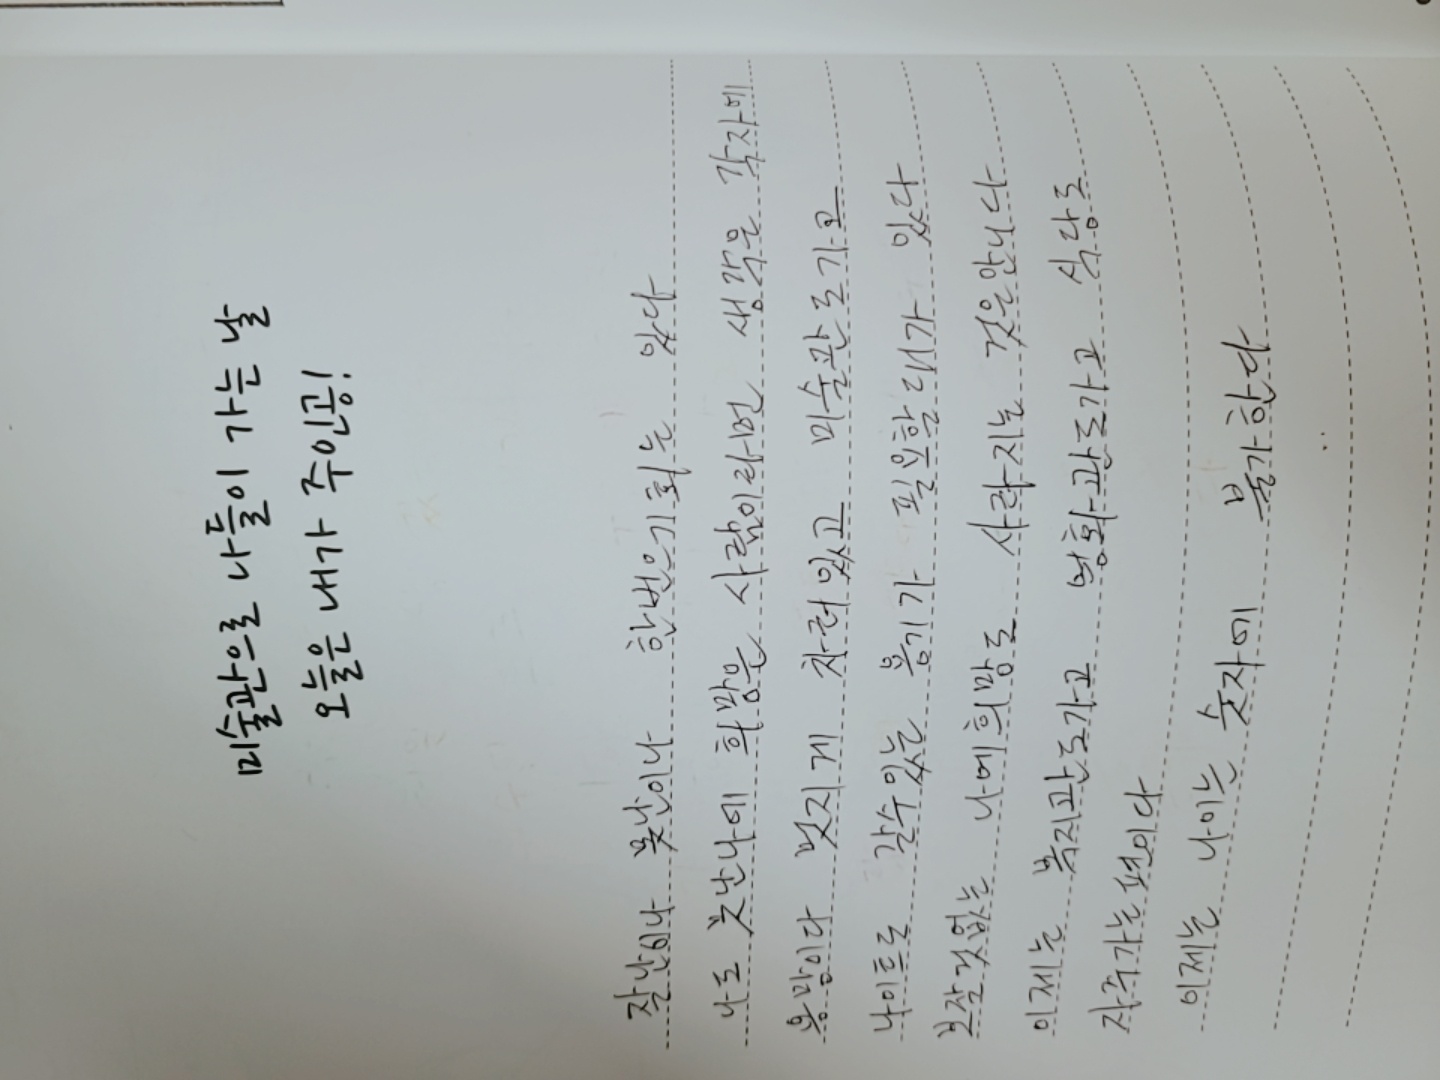 미술관으로 나들이 가는 날
오늘은 내가 주인공!
잘난이나 못난이나 한번은기회는 있다
나도 못난나에 희망은 사람이라면 생각은 각자에
몽망이다 멋지게 차려있고 미술관도가고
나이트도 갈수있는 용기가 필요할때가 있다
보잘것없는 나에희망도 사라지는 것은안니다
이제는 복지관도가고 영화관도가고 식당도
자주가는편이다
이제는 나이는 숫자에 불가한다